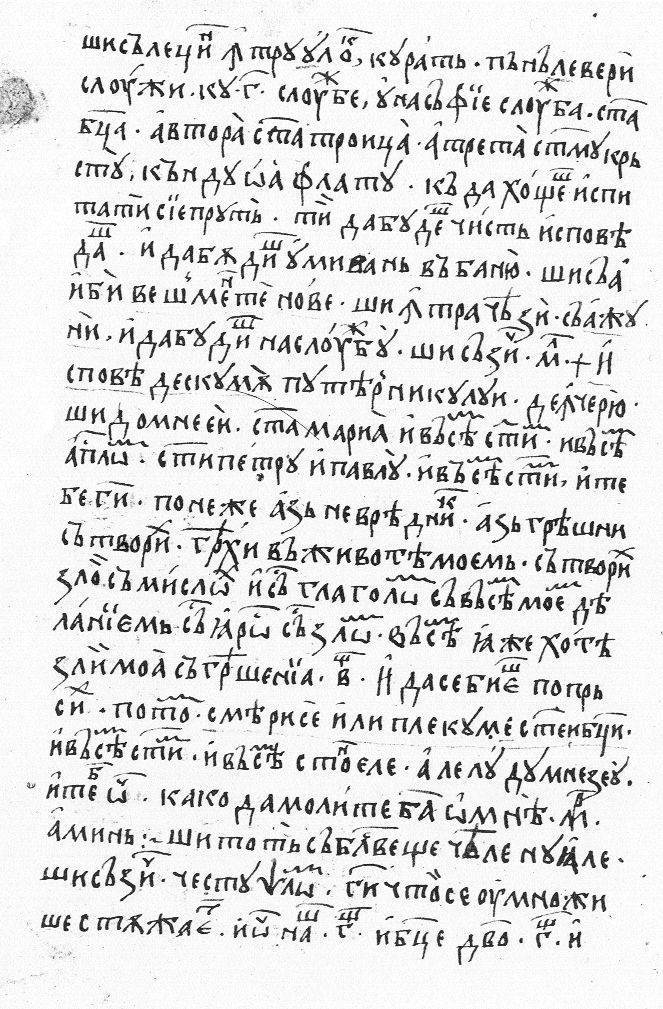 шисълецїи ꙟтруꙋлꙋ, курать · пънълевери
слоужи · ку · г҃ · слоужбе, ꙋнасъфїе слоужба · ст҃а
бц҃а · автора ст҃а троица · атрета ст҃му кръ
сту, кънду ѡа флату · къ да хоще испи
тати сїе прутъ · ти да буде чисть исповѣ
да · и дабѫди умивань въ баню · шисъа
иби вешминте нове · ши ꙟтрачѣ зи · съажу
ни, и дабуди наслоужбу · шисъзи · м҃л · + и
споведескумѫ путѣрникулуи · де ꙟчерю ·
ши домнееи · ст҃а мариа ивъсѣ ст҃и · ивъсѣ
ап҃лѡ · ст҃и петру и павлу · ивъсѣ ст҃и, ите
бе ги · понеже азь неврѣдни · азь грѣшни
сътвори · грхи въ животѣ моемь · сътвори
зло съмислѡ и съ глаголѡ съ въсѣ мое дѣ
ланїемь съ ꙗрѡ съ злѡ · въсѣ ꙗже хотѣ
зли моа съгрѣшенїа · в҃ · и да себиє попрь
си · пото · смѣрисе или плекуме ст҃еи бц҃и ·
ивъсѣ ст҃и · ивъсѣ ст҃ое еле · а лелу думнезеу ·
ите ѡ · како да молите ба ѡмнѣ · м҃л ·
аминь :~ ши тоть съблⷭ҇веще чѣле нуꙗле ·
шисъзи · честу ѱлѡ · ги что се оумножи
ше стѫжає · иѡ на · г҃ · ибц҃е дво · г҃ · и